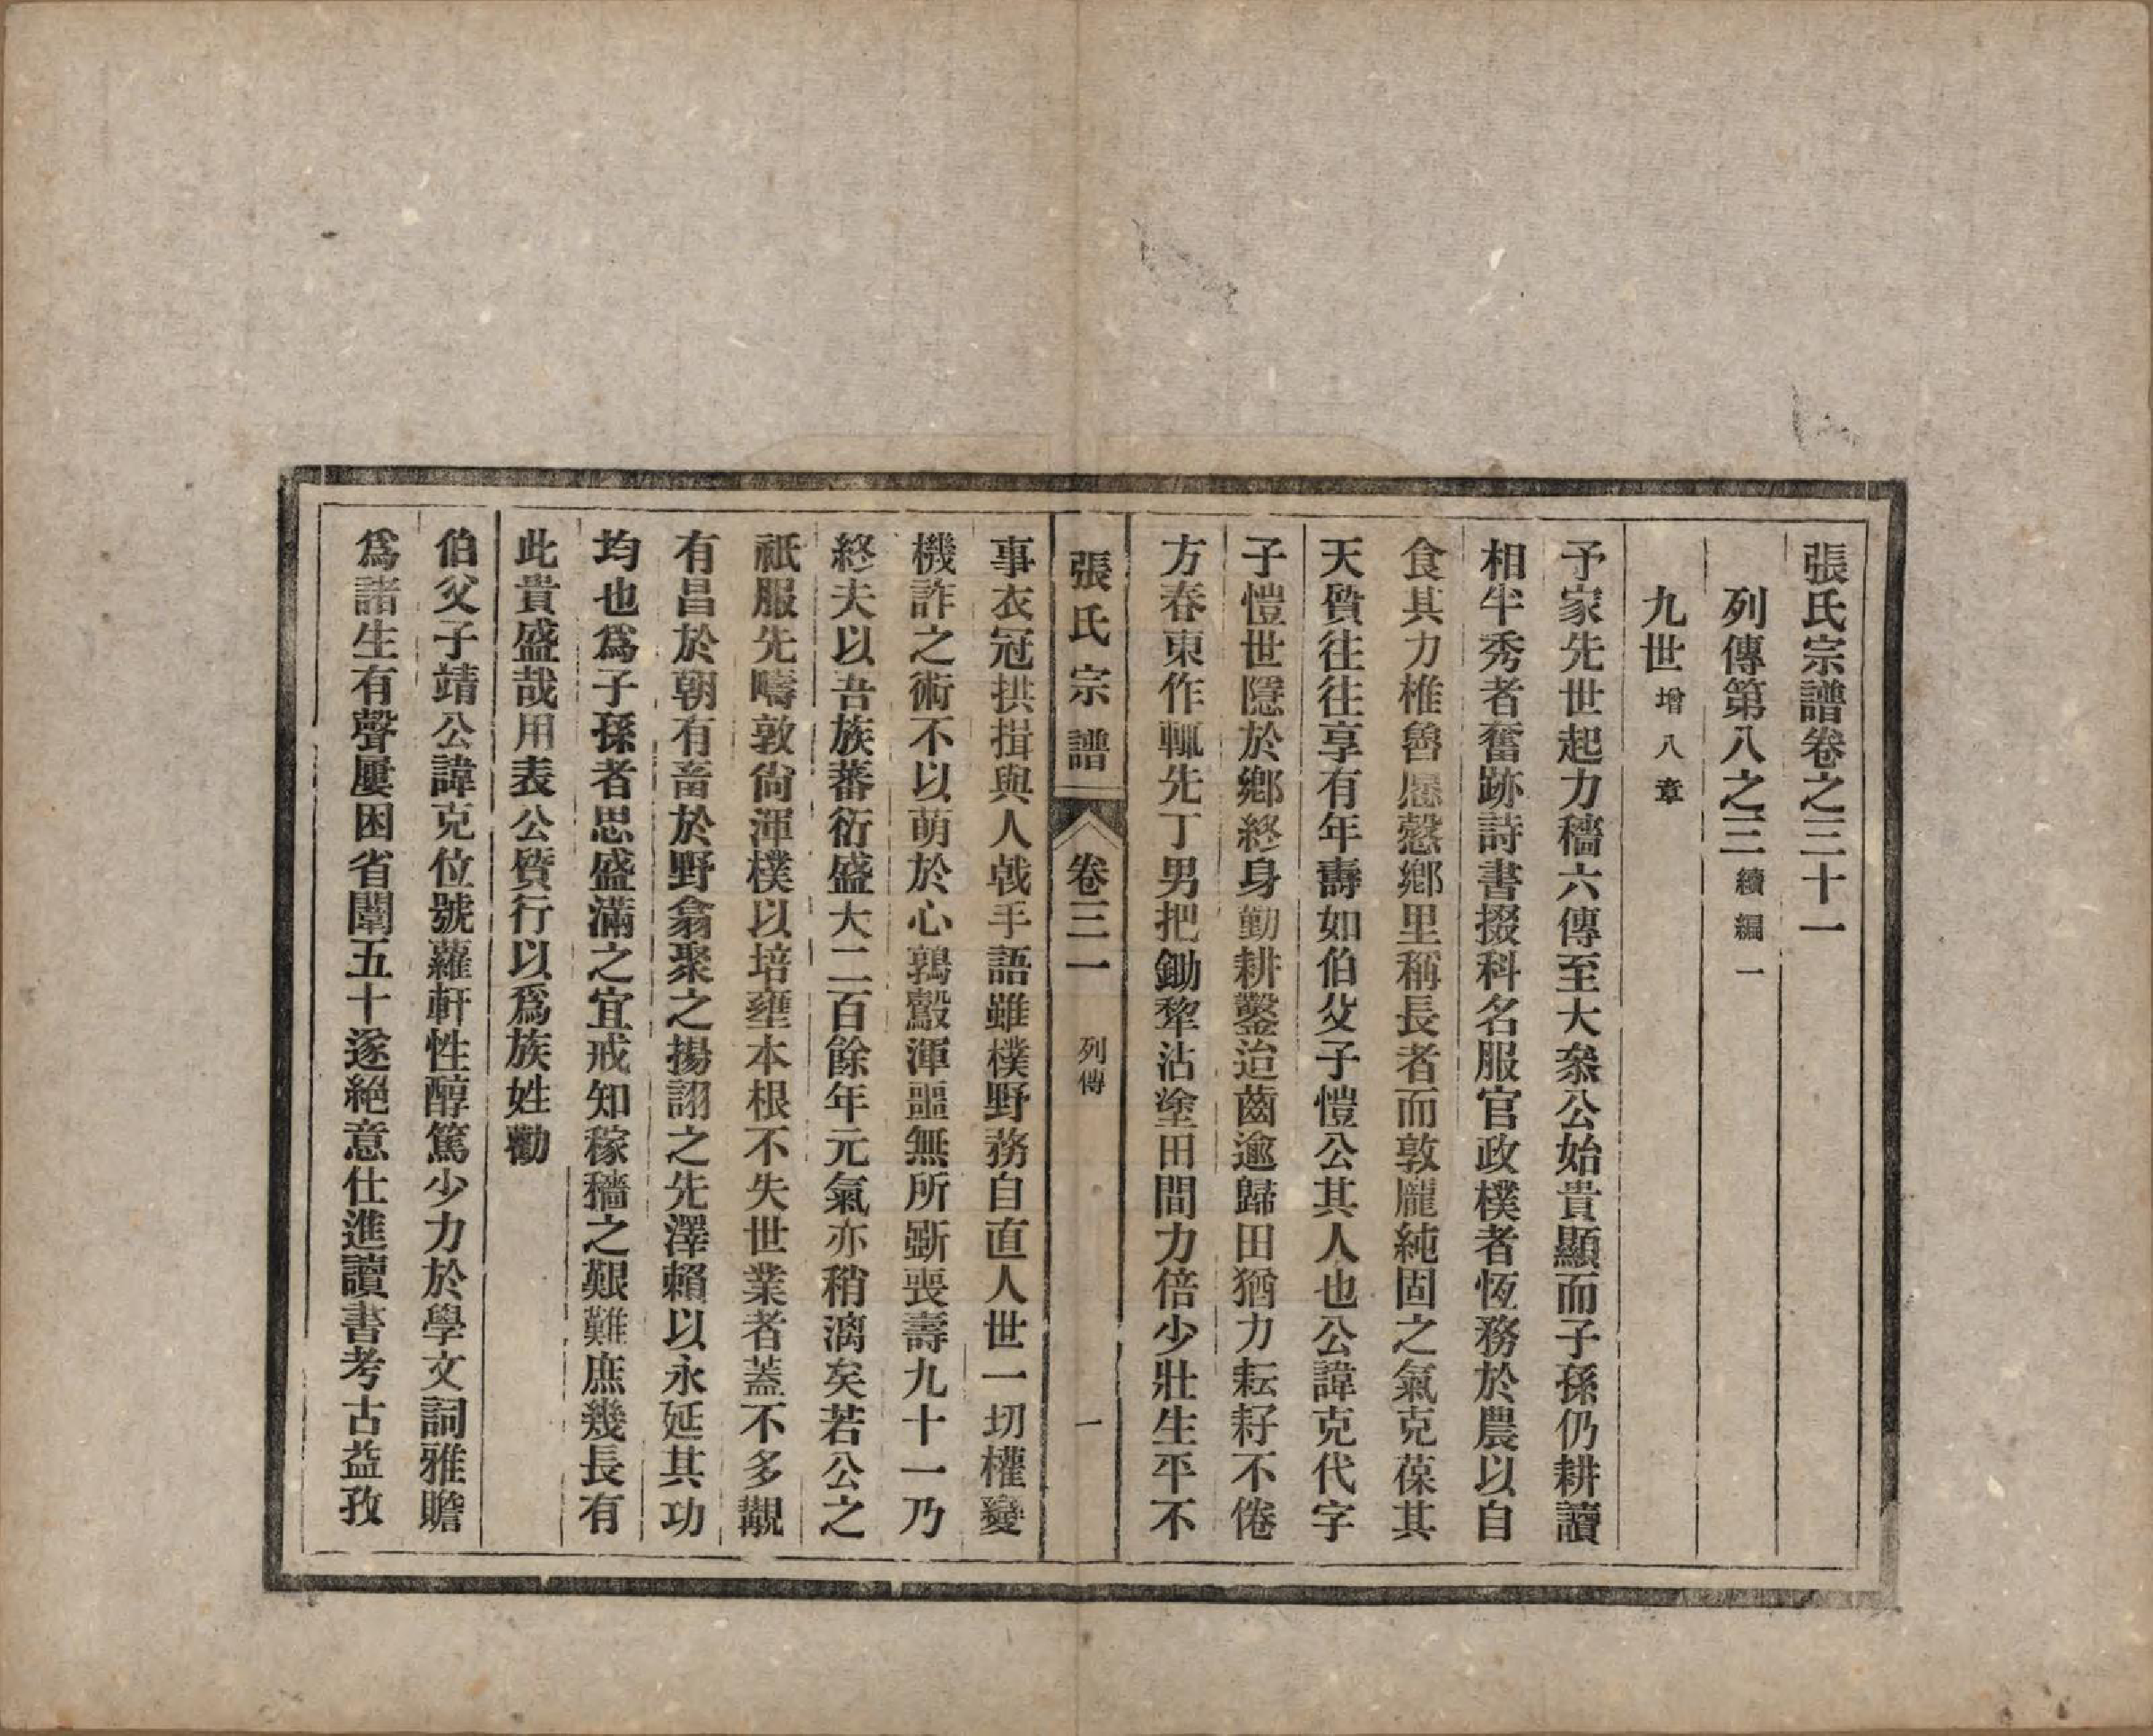 張氏宗譜卷之三十一
列傳第八之三續編一
九世增八章
予家先世起力穡六傳至大叅公始貴顯而子孫仍耕讀
相半秀者奮跡詩書掇科名服官政樸者恆務於農以自
食其力椎魯愿慤鄉里稱長者而敦龐純固之氣克葆其
天質往往享有年壽如伯父子愷公其人也公諱克代字
子愷世隱於鄉終身勤耕鑿迨齒逾歸田猶力耘耔不倦
方春東作輒先丁男把鋤犂沾塗田間力倍少壯生平不
張氏宗譜 卷三一 列傳 一
事衣冠拱揖與人戟手語雖樸野務自直人世一切權變
機詐之術不以萌於心鶉鷇渾噩無所斲喪壽九十一乃
終夫以吾族蕃衍盛大二百餘年元氣亦稍漓矣若公之
祇服先疇敦尙渾樸以培壅本根不失世業者蓋不多覯
有昌於朝有畜於野翕聚之揚詡之先澤賴以永延其功
均也爲子孫者思盛滿之宜戒知稼穡之艱難庶幾長有
此貴盛哉用表公質行以爲族姓勸
伯父子靖公諱克位號蘿軒性醇篤少力於學文詞雅贍
爲諸生有聲屢困省闈五十遂絕意仕進讀書考古益孜